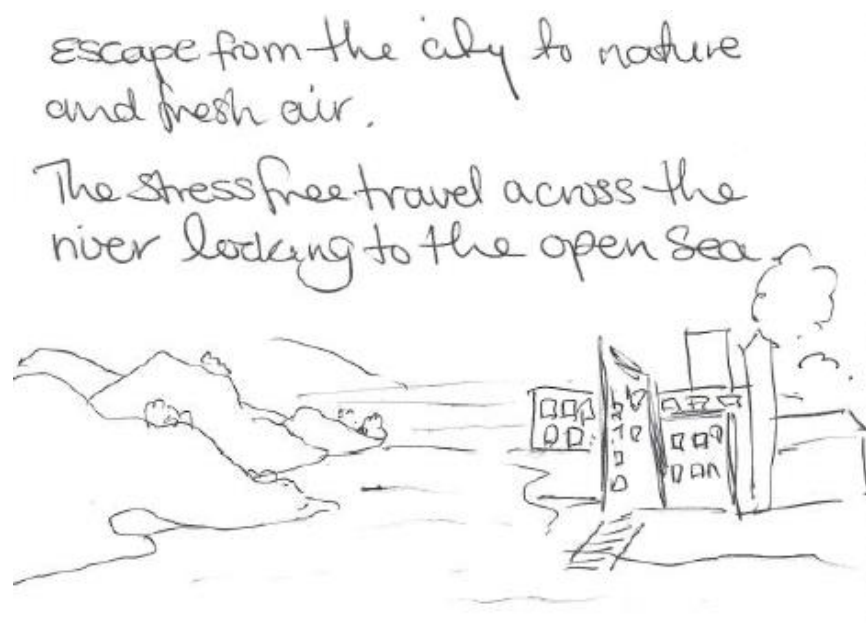 escape from the city to nature
and fresh air.
The stress free travel across the
river looking to the open sea